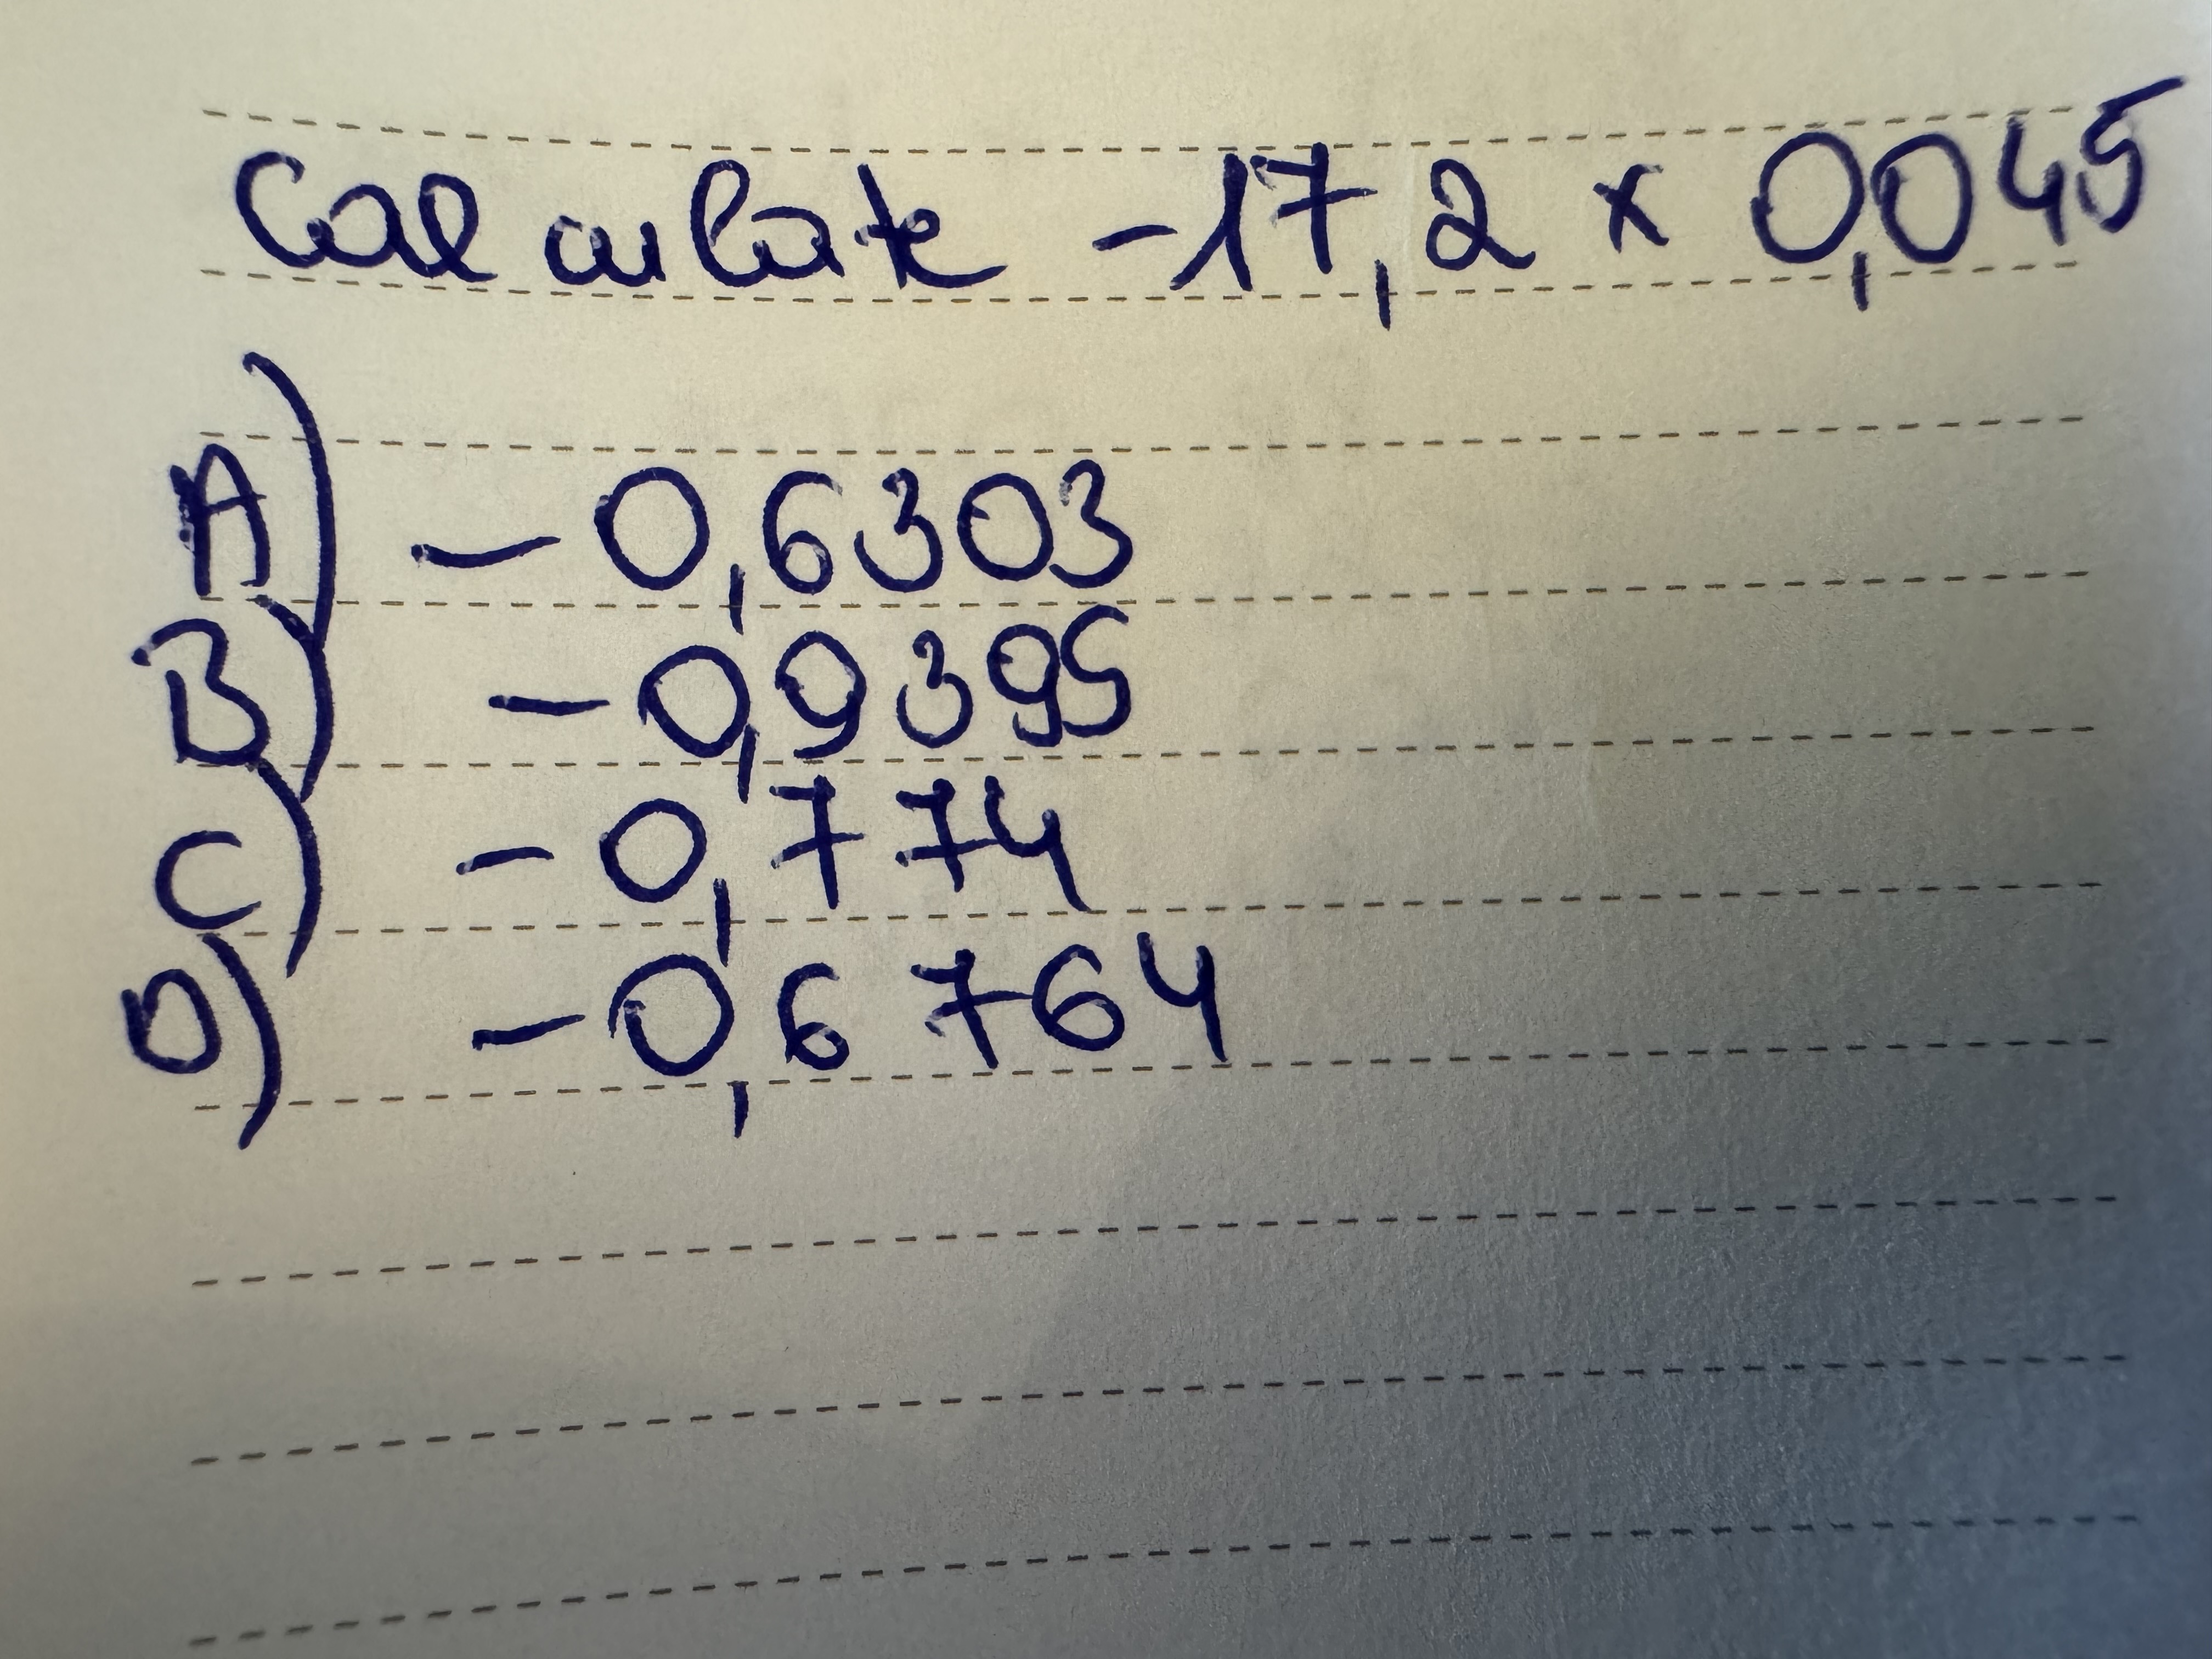 Calculate -17,2 x 0,045
A) -0,6303
B) -0,9395
C) -0,774
D) -0,6764